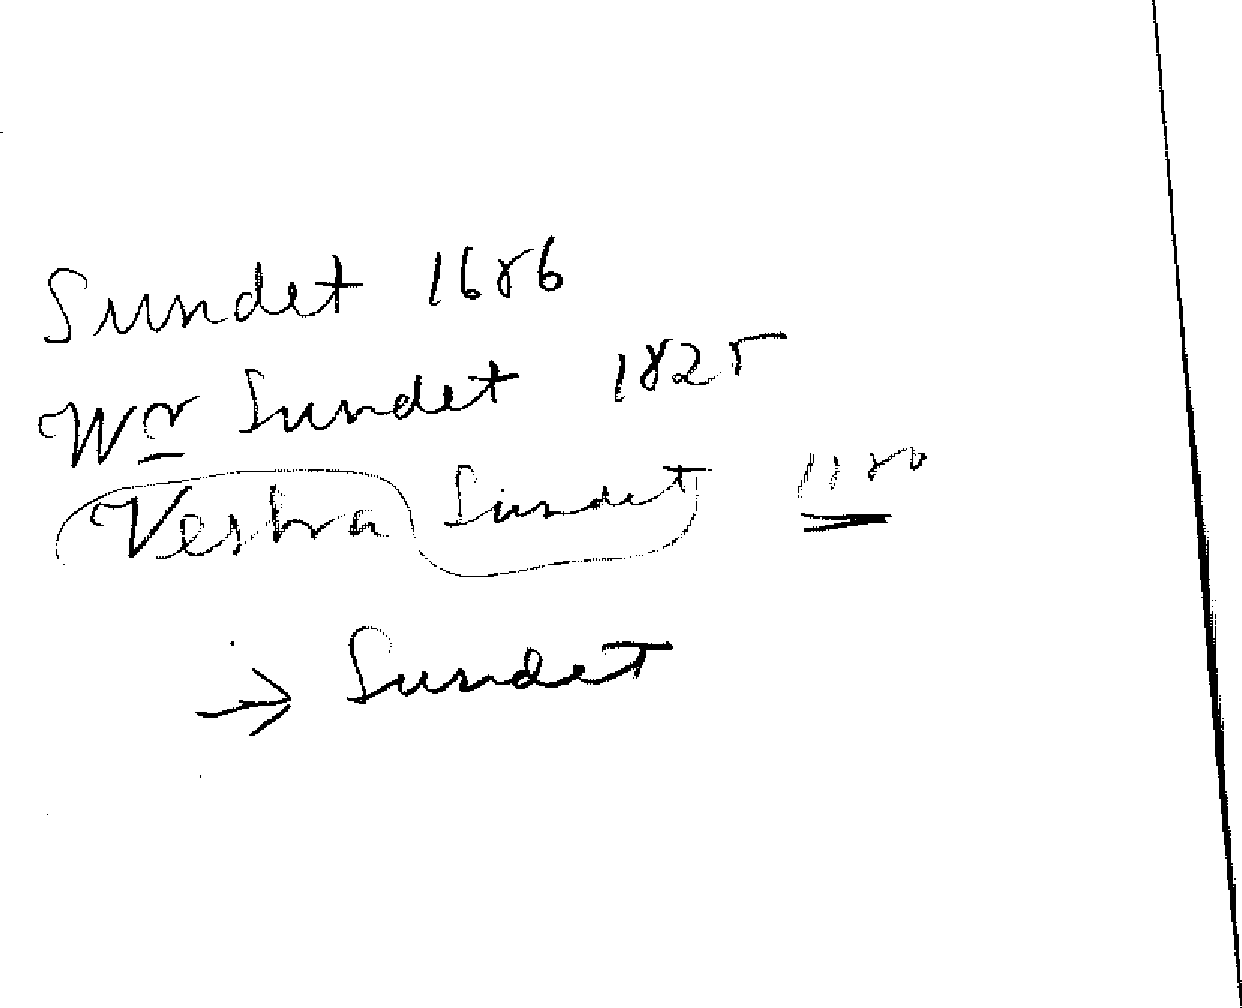 Sundet 1686
Wr Sundet 1825
Vestra Sundet
→ Sundet